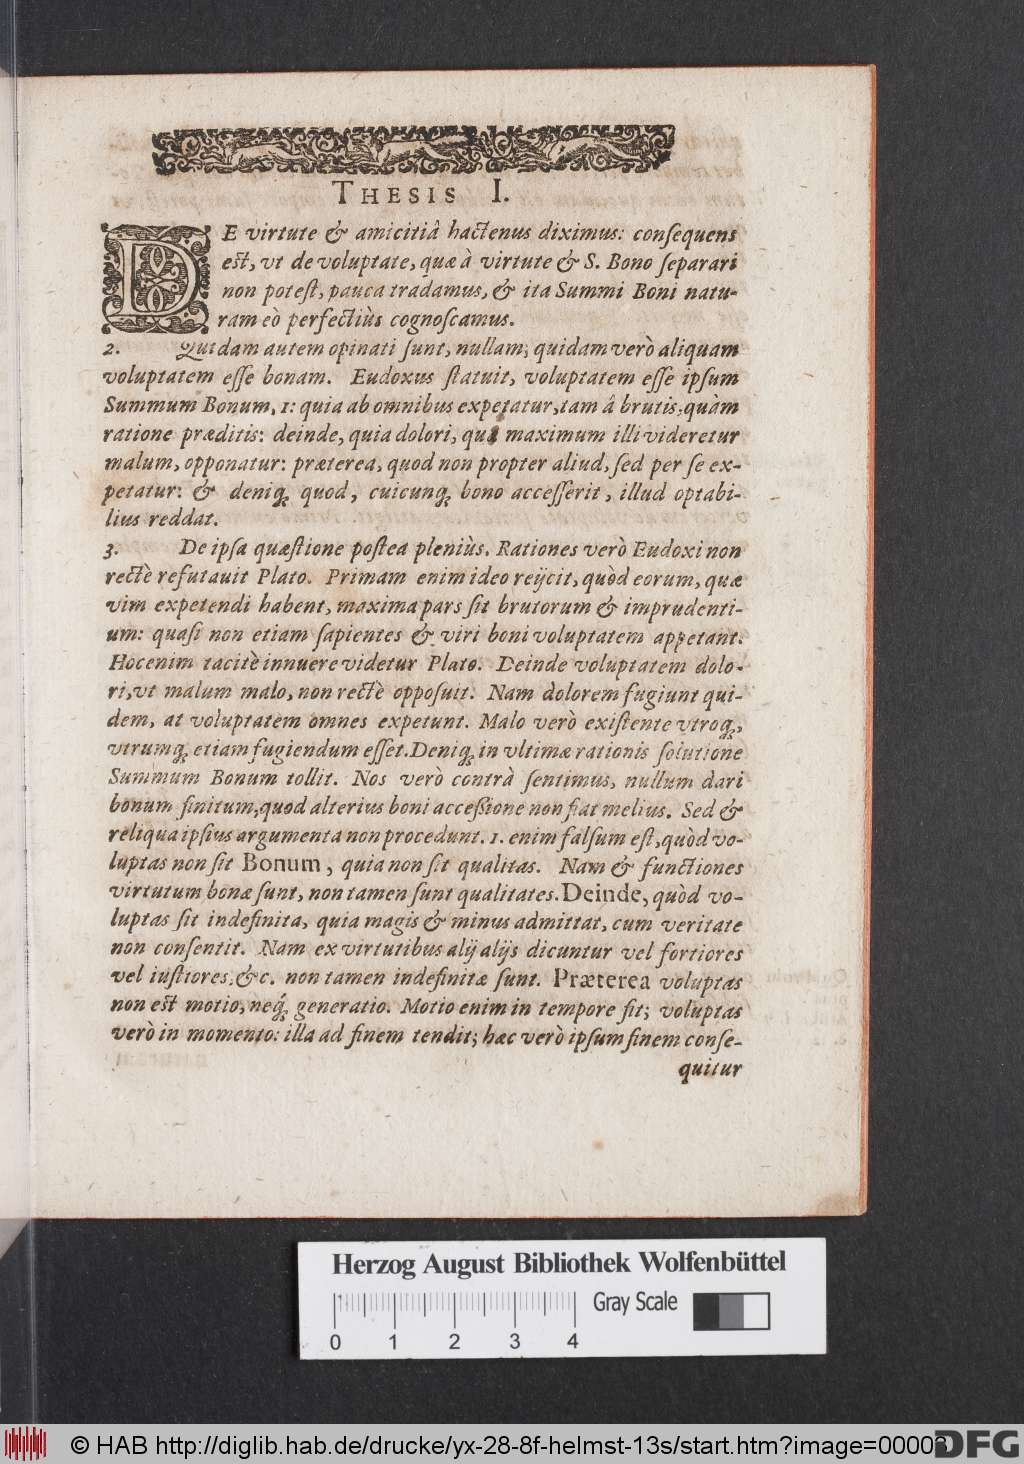 THESIS I.
DE virtute & amicitiâ hactenus diximus: consequens
est, vt de voluptate, quæ à virtute & S. Bono separari
non potest, pauca tradamus, & ita Summi Boni natu-
ram eò perfectiùs cognoscamus.
2. Quidam autem opinati sunt, nullam; quidam verò aliquam
voluptatem esse bonam. Eudoxus statuit, voluptatem esse ipsum
Summum Bonum, 1: quia ab omnibus expetatur, tam â brutis, quàm
ratione præditis: deinde, quia dolori, qui maximum illi videretur
malum, opponatur: præterea, quod non propter aliud, sed per se ex-
petatur: & deniq; quod, cuicunq; bono accesserit, illud optabi-
lius reddat.
3. De ipsa quæstione postea pleniùs. Rationes verò Eudoxi non
rectè refutauit Plato. Primam enim ideo reijcit, quòd eorum, quæ
vim expetendi habent, maxima pars sit brutorum & imprudenti-
um: quasi non etiam sapientes & viri boni voluptatem appetant.
Hoc enim tacitè innuere videtur Plato. Deinde voluptatem dolo-
ri, vt malum malo, non rectè opposuit. Nam dolorem fugiunt qui-
dem, at voluptatem omnes expetunt. Malo verò existente vtroq;,
vtrumq; etiam fugiendum esset. Deniq; in vltimæ rationis solutione
Summum Bonum tollit. Nos verò contrà sentimus, nullum dari
bonum finitum, quod alterius boni accessione non fiat melius. Sed &
reliqua ipsius argumenta non procedunt. 1. enim falsum est, quòd vo-
luptas non sit Bonum, quia non sit qualitas. Nam & functiones
virtutum bonæ sunt, non tamen sunt qualitates. Deinde, quòd vo-
luptas sit indefinita, quia magis & minus admittat, cum veritate
non consentit. Nam ex virtutibus alij alijs dicuntur vel fortiores
vel iustiores, &c. non tamen indefinitæ sunt. Præterea voluptas
non est motio, neq; generatio. Motio enim in tempore fit; voluptas
verò in momento: illa ad finem tendit; hæc verò ipsum finem conse-
quitur
Herzog August Bibliothek Wolfenbüttel
0 1 2 3 4 Gray Scale
© HAB http://diglib.hab.de/drucke/yx-28-8f-helmst-13s/start.htm?image=00003
DFG